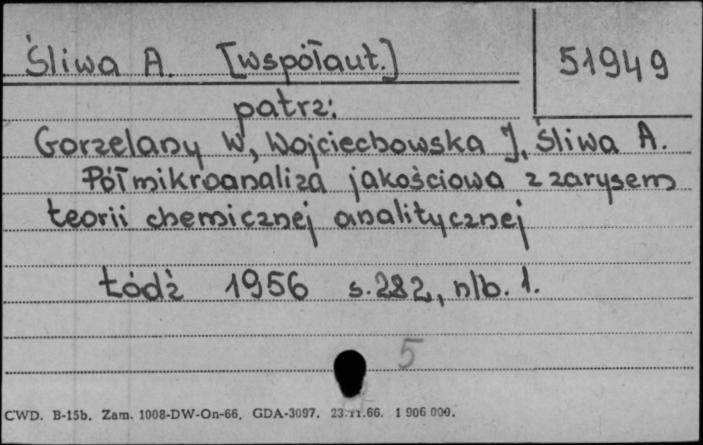 Śliwa A. [współaut.] 51949
patrz:
Gorzelany W, Wojciechowska J, Śliwa A.
Półmikroanaliza jakościowa z zarysem
teorii chemicznej analitycznej
Łódź 1956 s. 282, nlb. 1.
5
CWD. B-15b. Zam. 1008-DW-On-66. GDA-3097. 23.II.66. 1 906 000.